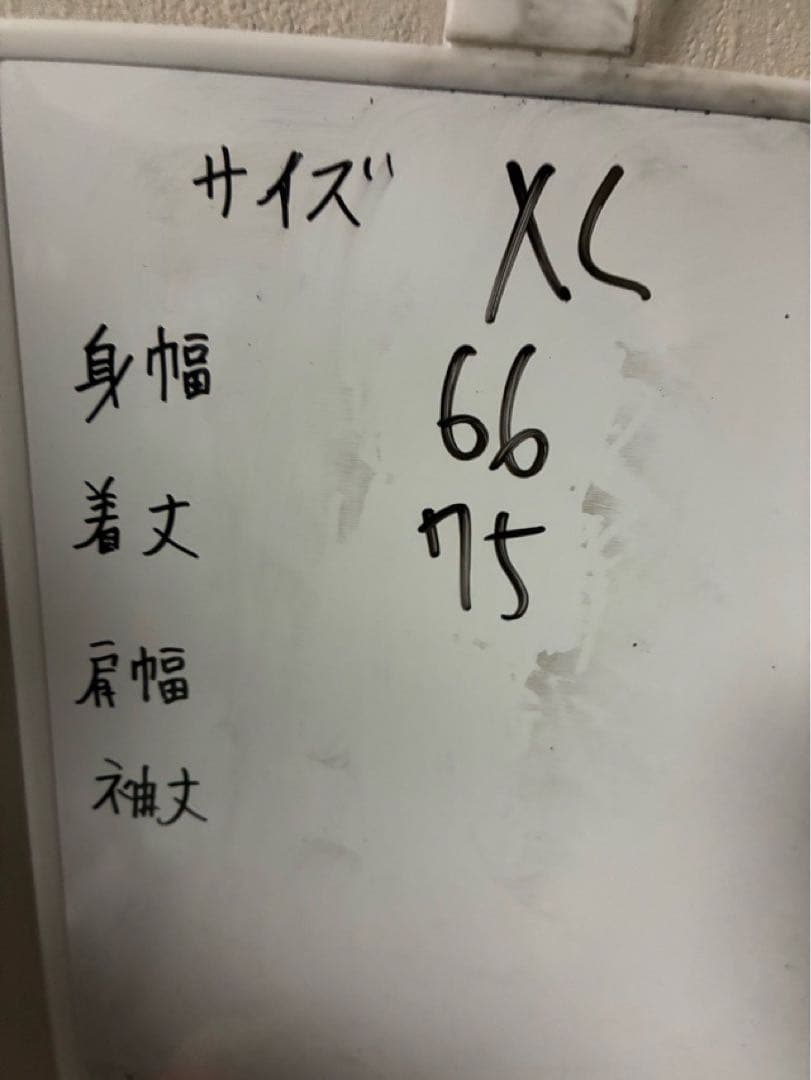 サイズ XL
身幅 66
着丈 75
肩幅
袖丈